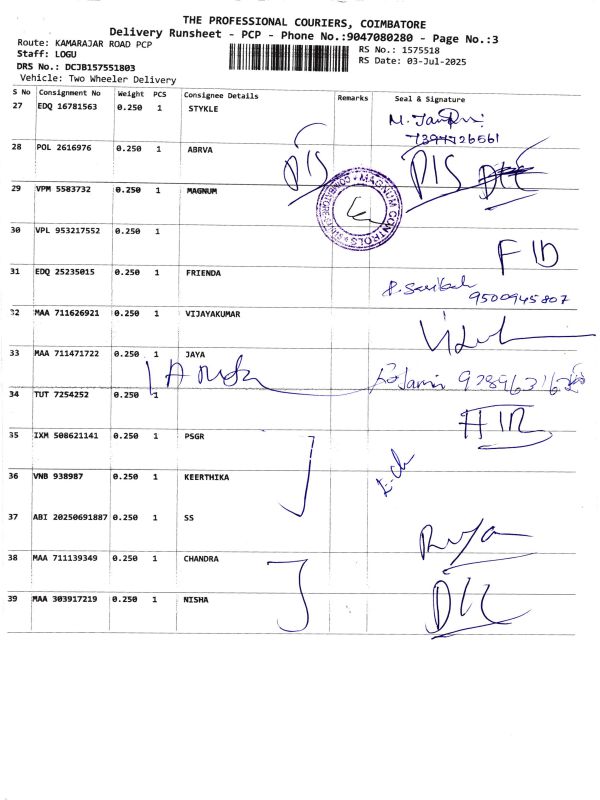 THE PROFESSIONAL COURIERS, COIMBATORE
Delivery Runsheet - PCP - Phone No.:9047080280 - Page No.:3
Route: KAMARAJAR ROAD PCP
Staff: LOGU
DRS No.: DCJB157551803
Vehicle: Two Wheeler Delivery
RS No.: 1575518
RS Date: 03-Jul-2025
S No Consignment No Weight PCS Consignee Details Remarks Seal & Signature
27 EDQ 16781563 0.250 1 STYKLE
28 POL 2616976 0.250 1 ABRVA D/S D/S
29 VPM 5583732 0.250 1 MAGNUM MAGNUM CONTROLS
30 VPL 953217552 0.250 1 FID
31 EDQ 25235015 0.250 1 FRIENDA
9500945807
32 MAA 711626921 0.250 1 VIJAYAKUMAR
33 MAA 711471722 0.250 1 JAYA
34 TUT 7254252 0.250 1
35 IXM 508621141 0.250 1 PSGR
36 VNB 938987 0.250 1 KEERTHIKA
37 ABI 20250691887 0.250 1 SS
38 MAA 711139349 0.250 1 CHANDRA
39 MAA 303917219 0.250 1 NISHA